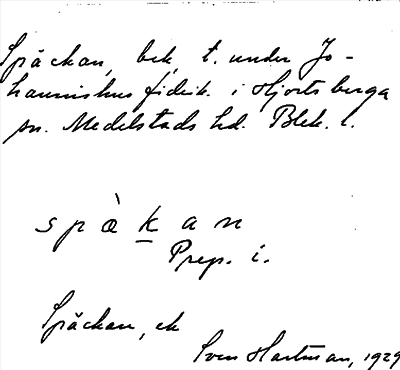 Späckan, bek. t. under Jo-
hannishus fideik. i Hjortsberga
sn. Medelstads hd. Blek. l.
spàkan
Prep. i.
Späckan, ek
Sven Hartman, 1929